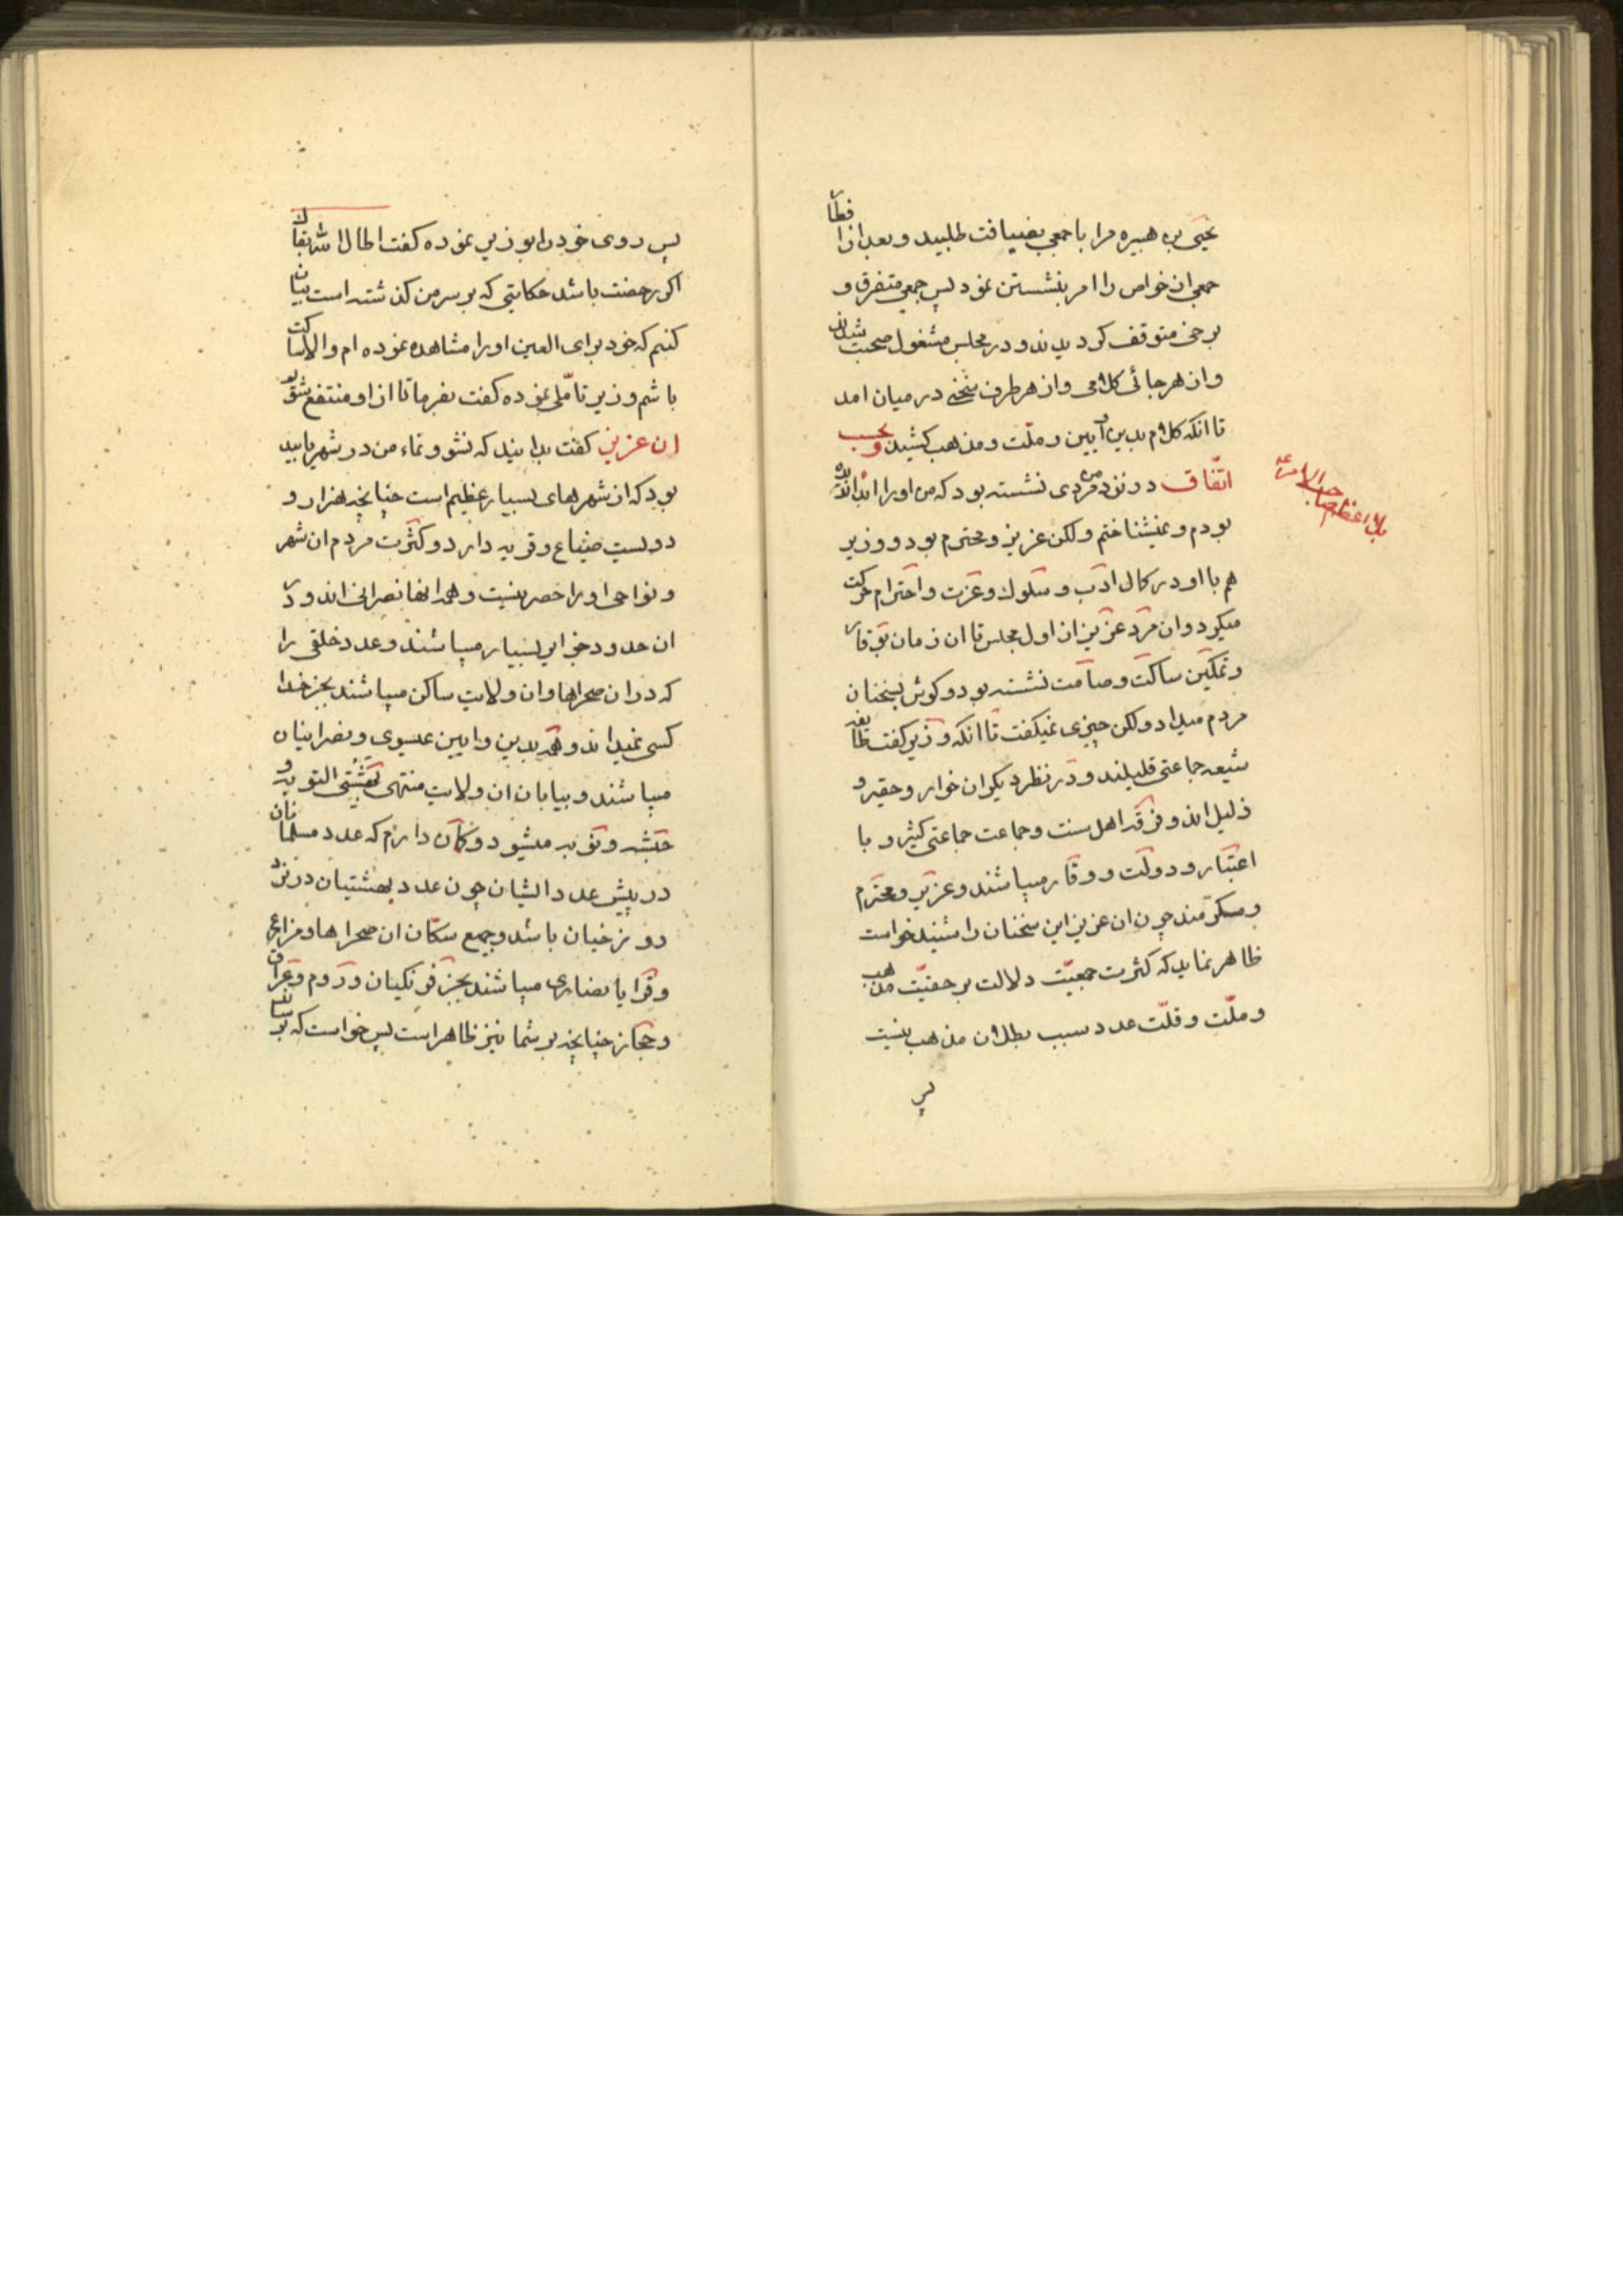 یحیی بن هبیره مرا با جمعی بضیافت طلبید و بعد از افطار
جمعی از خواص را امر بنشستن نمود پس جمعی متفرق و
برخی متوقف کردیدند و در مجلس مشغول صحبت شدند
و از هر جائی کلامی و از هر طرف سخنی در میان امد
تا انکه کلام بدین و آیین و ملّت و مذهب کشید و بحسب
اتّفاق در نزد من مردی نشسته بود که من او را ابدا ندیده
بودم و نمیشناختم ولکن عزیز و محترم بود و وزیر
هم با او در کمال ادب و سلوك و عزت و احترام حرکت
میکرد و ان مرد عزیز از اول مجلس تا ان زمان بوقار
و تمکین ساکت و صامت نشسته بود و کوش بسخنان
مردم میداد ولکن چیزی نمیکفت تا انکه وزیر کفت طایفه
شیعه جماعتی قلیلند و در نظر دیکران خوار و حقیر و
ذلیل اند و فرقه اهل سنت و جماعت جماعتی کثیر و با
اعتبار و دولت و وقار میباشند و عزیز و محترم
و مکرّمند چون ان عزیز این سخنان را شنید خواست
ظاهر نماید که کثرت جمعیّت دلالت بر حقیّت مذهب
و ملّت و قلّت عدد سبب بطلان مذهب نیست
پس
پس روی خود را بوزیر نموده کفت اطال الله بقاك
اکر رخصت باشد حکایتی که بر سر من کذشته است بیان
کنم که خود برای العین او را مشاهده نموده ام والا ساکت
باشم وزیر تاملی نموده کفت بفرما تا از او منتفع شویم
ان عزیز کفت بدانید که نشو و نماء من در شهر باسد
بود که از شهرهای بسیار عظیم است چنانچه هزار و
دویست ضیاع و قریه دارد و کثرت مردم ان شهر
و نواحی او را حصر نیست و همه انها نصرانی اند و در
ان حدود جزایر بسیار میباشند و عدد خلقی را
که در ان صحراها و ان ولایت ساکن میباشند بجز خدا
کسی نمیداند و همه بدین و ایین عیسوی و نصرانیان
میباشند و بیابان ان ولایت منتهی النوبه و
حبشه و نوبه میشود و کمان دارم که عدد مسلمانان
در پیش عدد ایشان چون عدد بهشتیان در نزد
دوزخیان باشد و جمیع سکّان ان صحراها و مزارع
و قرایا نصاری میباشند بجز فرنکیان و روم و عراق
و حجاز چنانچه بر شما نیز ظاهر است پس خواست که بر